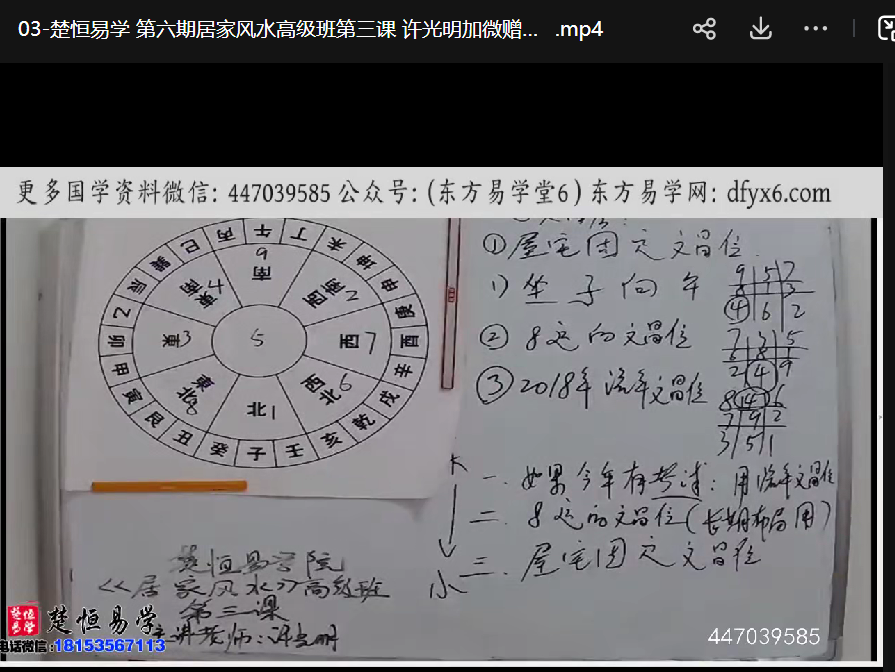 03-楚恒易学 第六期居家风水高级班第三课 许光明加微赠... .mp4
更多国学资料微信: 447039585 公众号:(东方易学堂6) 东方易学网: dfyx6.com
巽 巳 丙 午 丁 未 坤
辰 申
乙 庚
卯 酉
甲 辛
寅 戌
艮 丑 癸 子 壬 亥 乾
9
南
東南 4 西南 2
東 3 5 西 7
東北 8 西北 6
北 1
①屋宅固定文昌位
1) 坐子向午
9 5 7
8 1 3
④ 6 2
② 8运的文昌位
7 3 5
6 8 1
2 ④ 9
③ 2018年流年文昌位
8 ④ 6
7 9 2
3 5 1
大
一. 如果今年有考试: 用流年文昌位
二. 8运的文昌位(长期布局用)
小 三. 屋宅固定文昌位
楚恒易学院
<<居家风水>>高级班
第三课
主讲老师:许光明
楚恒易学
楚恒易学
电话微信:18153567113
447039585